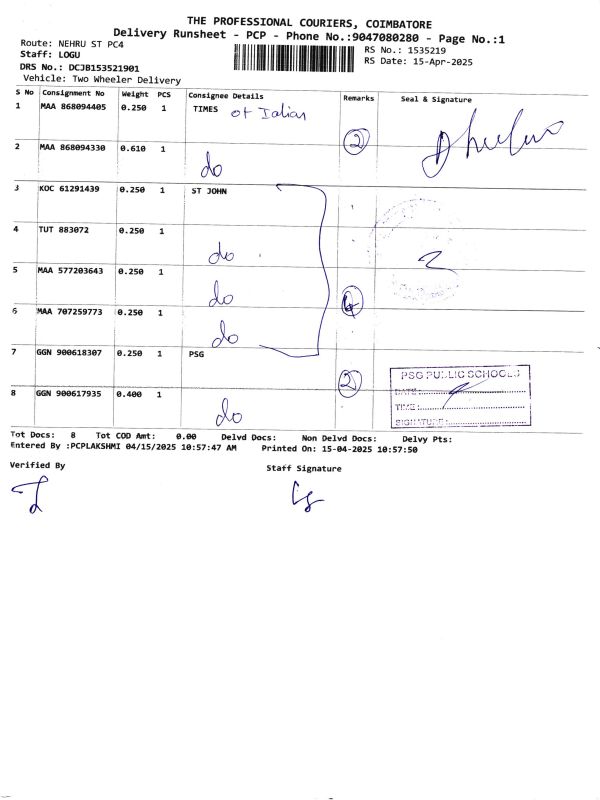 THE PROFESSIONAL COURIERS, COIMBATORE
Delivery Runsheet - PCP - Phone No.:9047080280 - Page No.:1
Route: NEHRU ST PC4
RS No.: 1535219
Staff: LOGU
RS Date: 15-Apr-2025
DRS No.: DCJB153521901
Vehicle: Two Wheeler Delivery
S No Consignment No Weight PCS Consignee Details Remarks Seal & Signature
1 MAA 868094405 0.250 1 TIMES of Indian
2 MAA 868094330 0.610 1 do 2
3 KOC 61291439 0.250 1 ST JOHN
4 TUT 883072 0.250 1 do 2
5 MAA 577203643 0.250 1 do
6 MAA 707259773 0.250 1 do 4
7 GGN 900618307 0.250 1 PSG
8 GGN 900617935 0.400 1 do 2
PSG PUBLIC SCHOOLS
DATE:
TIME:
SIGNATURE:
Tot Docs: 8 Tot COD Amt: 0.00 Delvd Docs: Non Delvd Docs: Delvy Pts:
Entered By :PCPLAKSHMI 04/15/2025 10:57:47 AM Printed On: 15-04-2025 10:57:50
Verified By Staff Signature